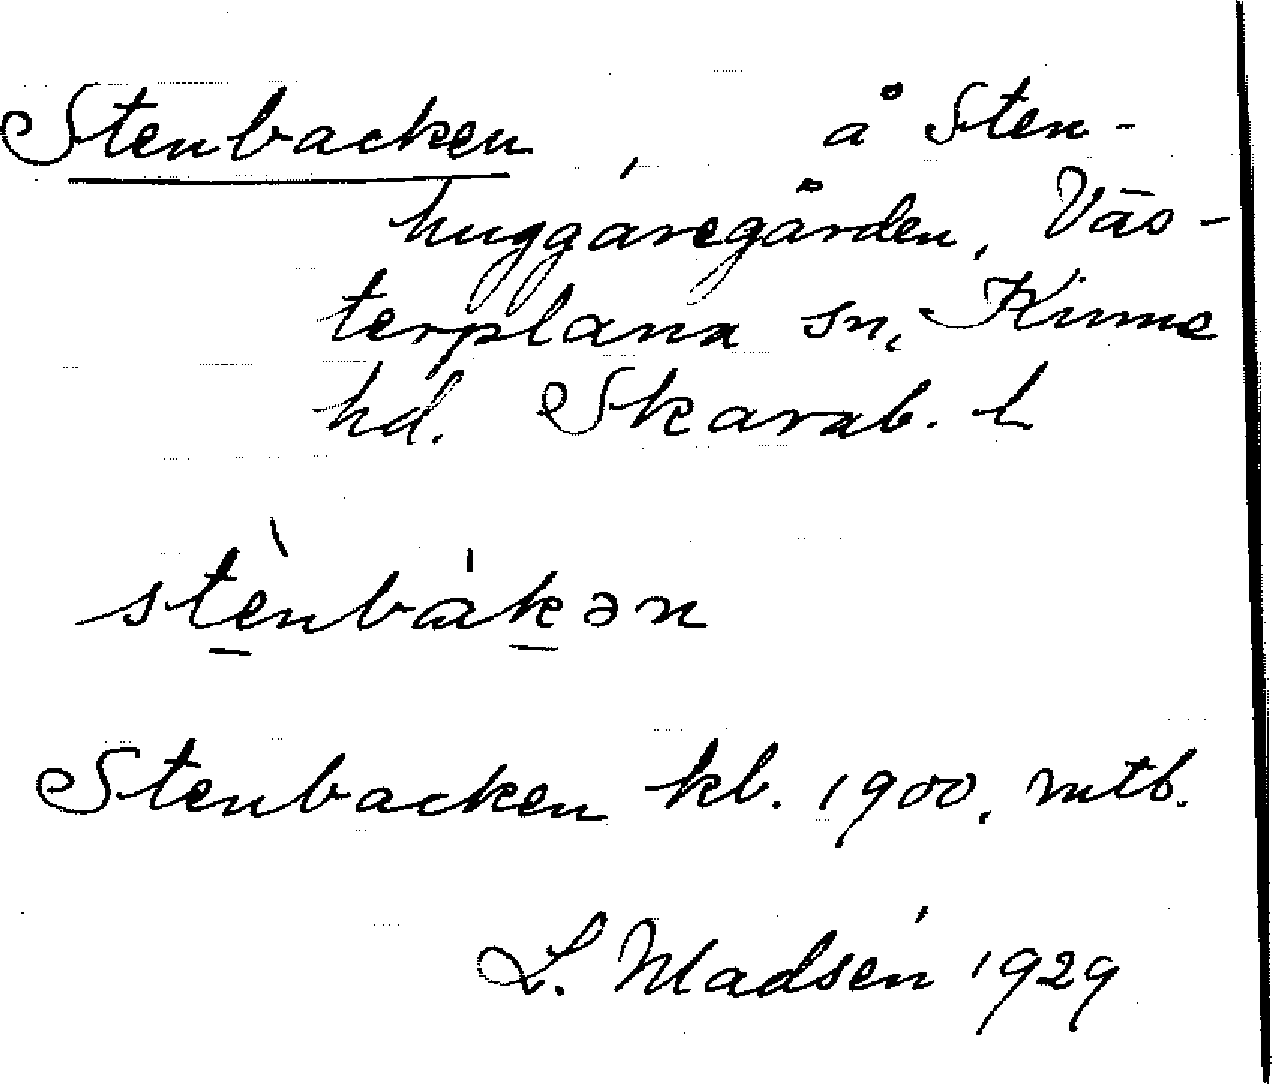 Stenbacken, å Sten-
huggaregården, Väs-
terplana sn, Kinne
hd. Skarab. l
stènbákən
Stenbacken kb. 1900, mtb.
L. Madsén 1929